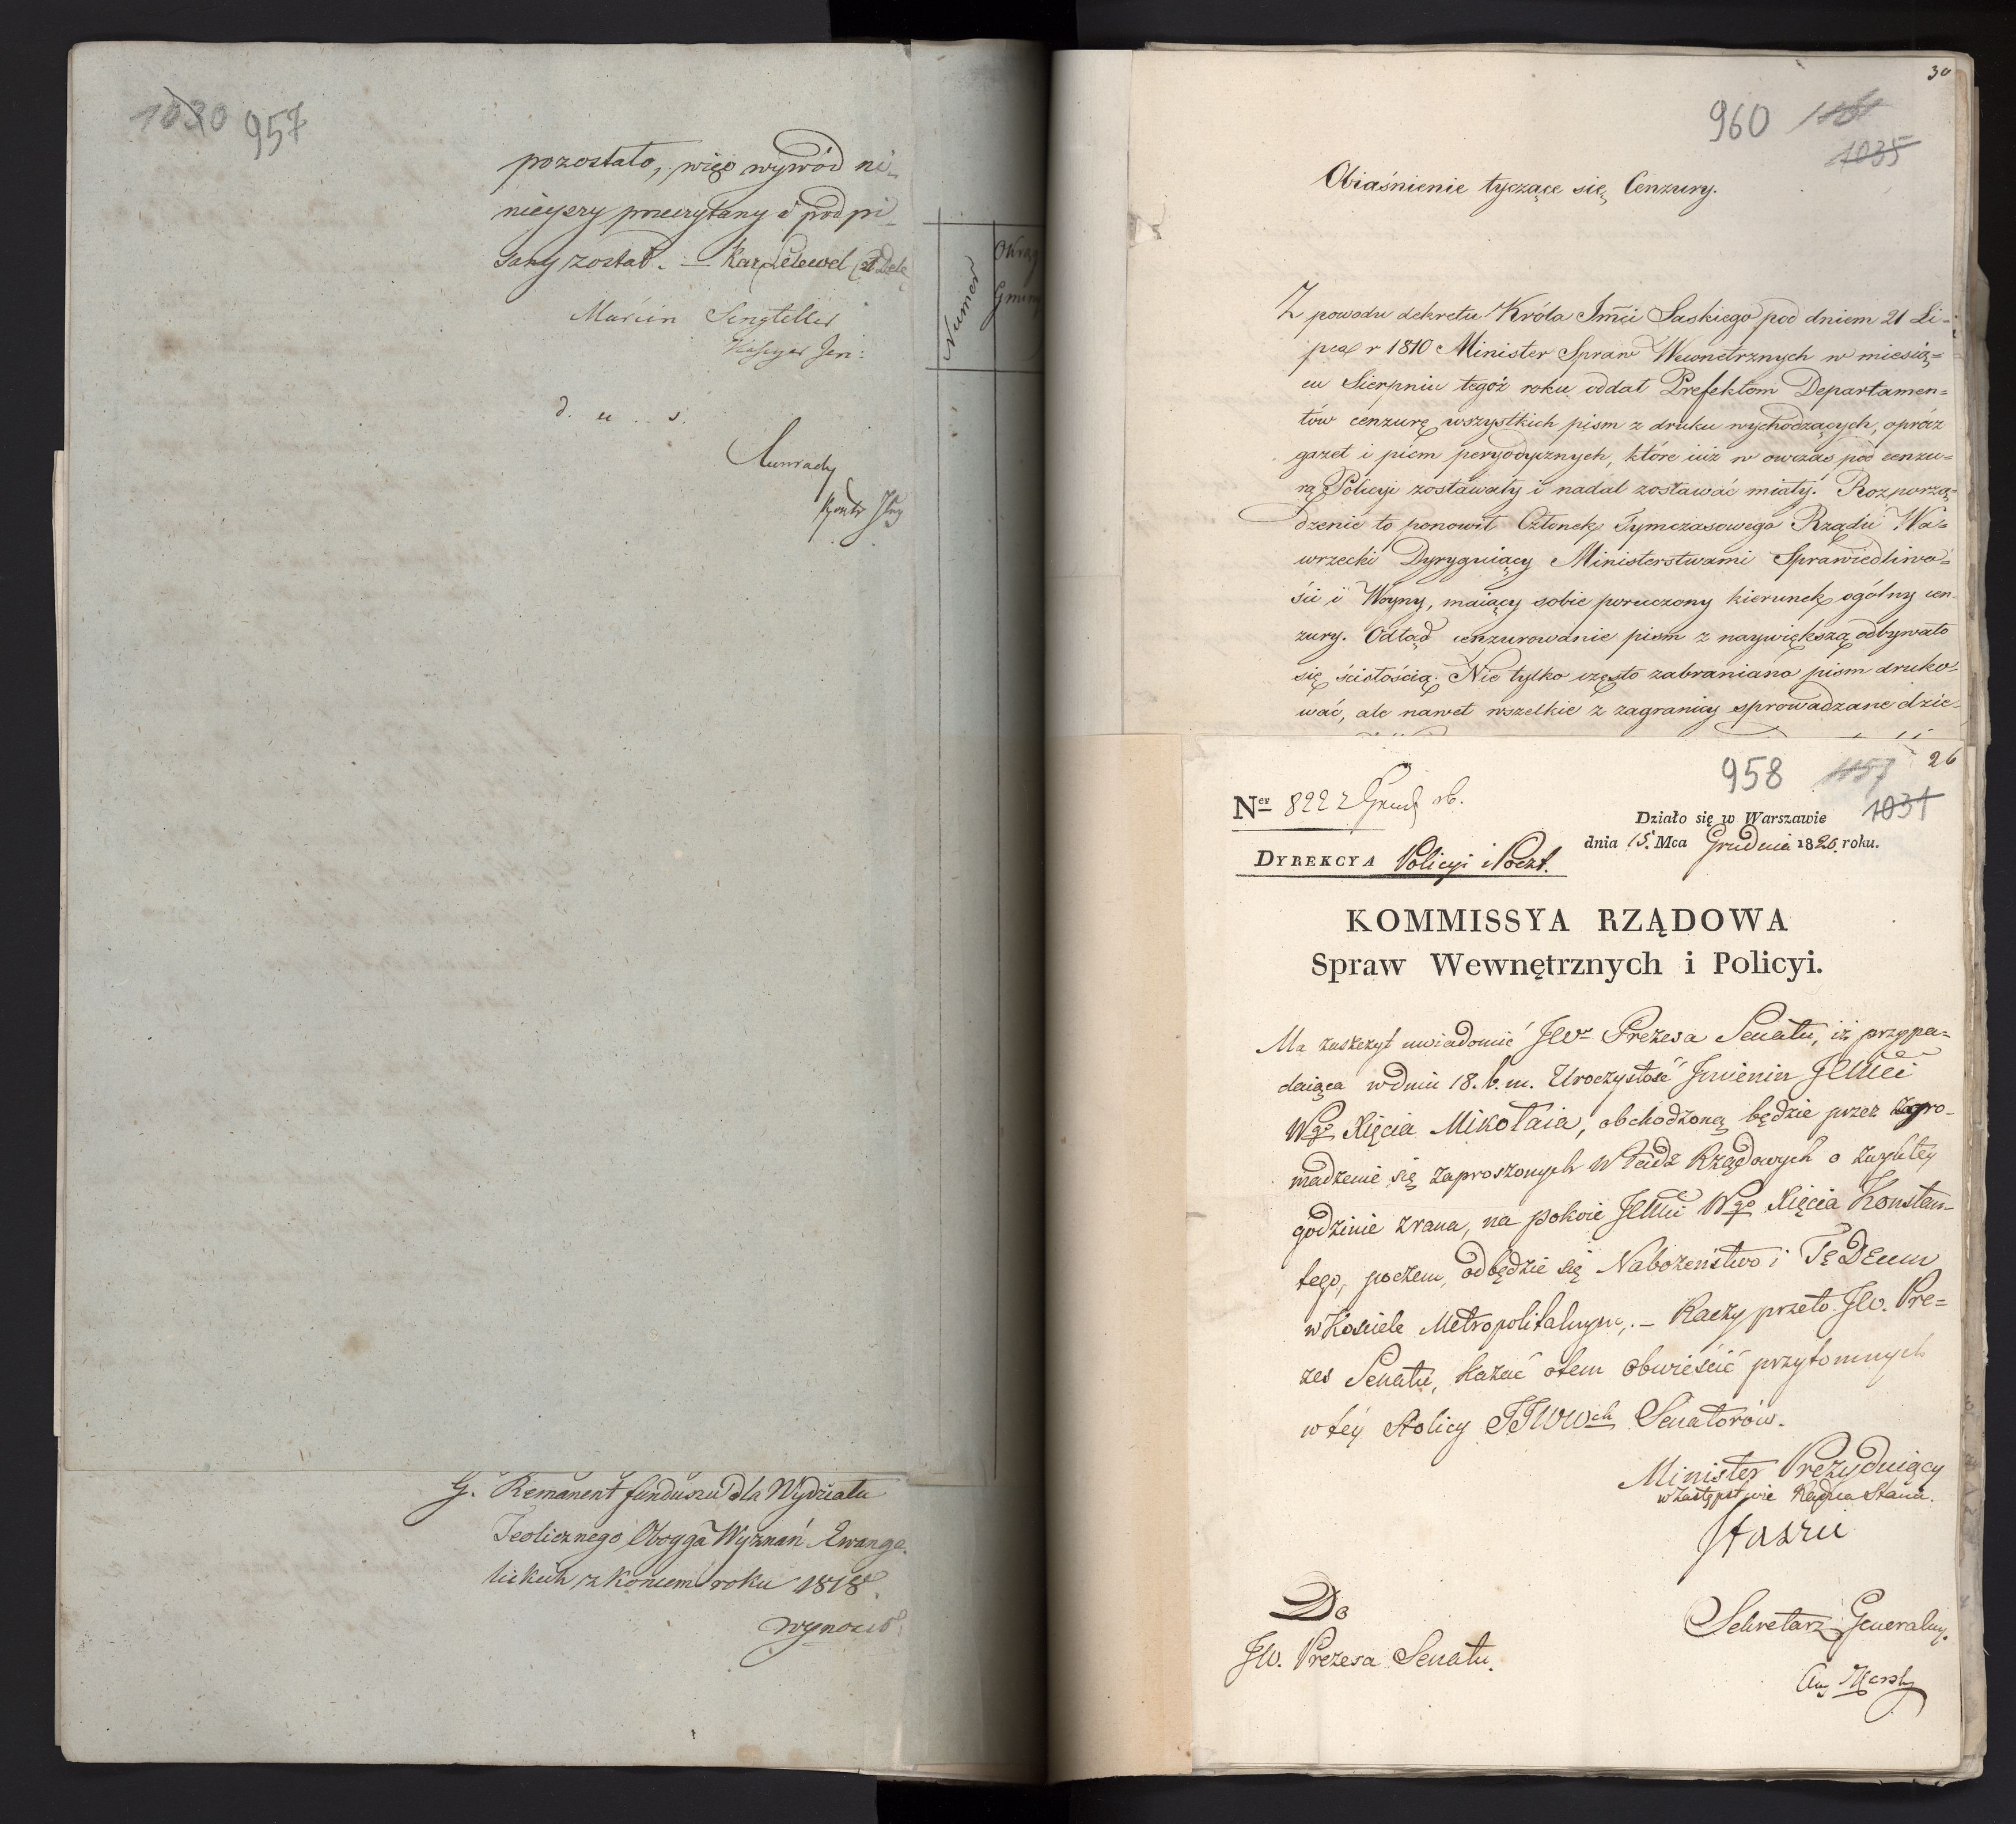 1030 957
pozostało, więc wywód ni-
nieyszy przeczytany i podpi-
sany został. — Karol Lelewel
Marcin
d. u. s.
Numer
Okrąg
Gminy
G. Remanent funduszu dla Wydziału
Teolicznego Oboyga Wyznań Ewange-
lickich z końcem roku 1818.
wynosił
30
960
1035
Obiaśnienie tyczące się Cenzury.
Z powodu dekretu Króla Jmci Saskiego pod dniem 21 Li-
pca r 1810 Minister Spraw Wewnetrznych w miesią=
cu Sierpniu tegoż roku oddał Prefektom Departamen=
tów cenzurę wszystkich pism z druku wychodzących, oprócz
gazet i pism peryodycznych, które iuż w owczas pod cenzu=
rą Policyi zostawały i nadal zostawać miały. Rozporzą=
dzenie to ponowił Członek Tymczasowego Rządu Wa=
wrzecki Dyryguiący Ministerstwami Sprawiedliwo=
ści i Woyny, maiący sobie poruczony kierunek ogólny cen
zury. Odtąd cenzurowanie pism z naywiększą odbywało
się ścisłością. Nie tylko często zabraniano pism druko=
wać, ale nawet wszelkie z zagranicy sprowadzane dzie-
26
958 1157
1031
Ner 822 z Grud rb.
Działo się w Warszawie
dnia 15. Mca Grudnia 1820. roku.
DYREKCYA Policyi i Poczt.
KOMMISSYA RZĄDOWA
Spraw Wewnętrznych i Policyi.
Ma zaszczyt uwiadomić JWo Prezesa Senatu, iż przypa=
daiąca w dniu 18. b. m. Uroczystość Jmienin JCMci
Wgo Xięcia Mikołaia, obchodzoną będzie przez zgro-
madzenie się zaproszonych Władz Rządowych o zwykłey
godzinie zrana, na pokoie JCMci Wgo Xięcia Konstan-
tego, poczem, odbędzie się Nabożeństwo i Te Deum
w Kościele Metropolitalnym. — Raczy przeto JW. Pre=
zes Senatu, kazać otem obwieścić przytomnych
w tey Stolicy JJWWch Senatorów.
Minister Prezyduiący
w zastępstwie Radca Stanu.
Staszic
Do
JW. Prezesa Senatu.
Sekretarz Generalny.